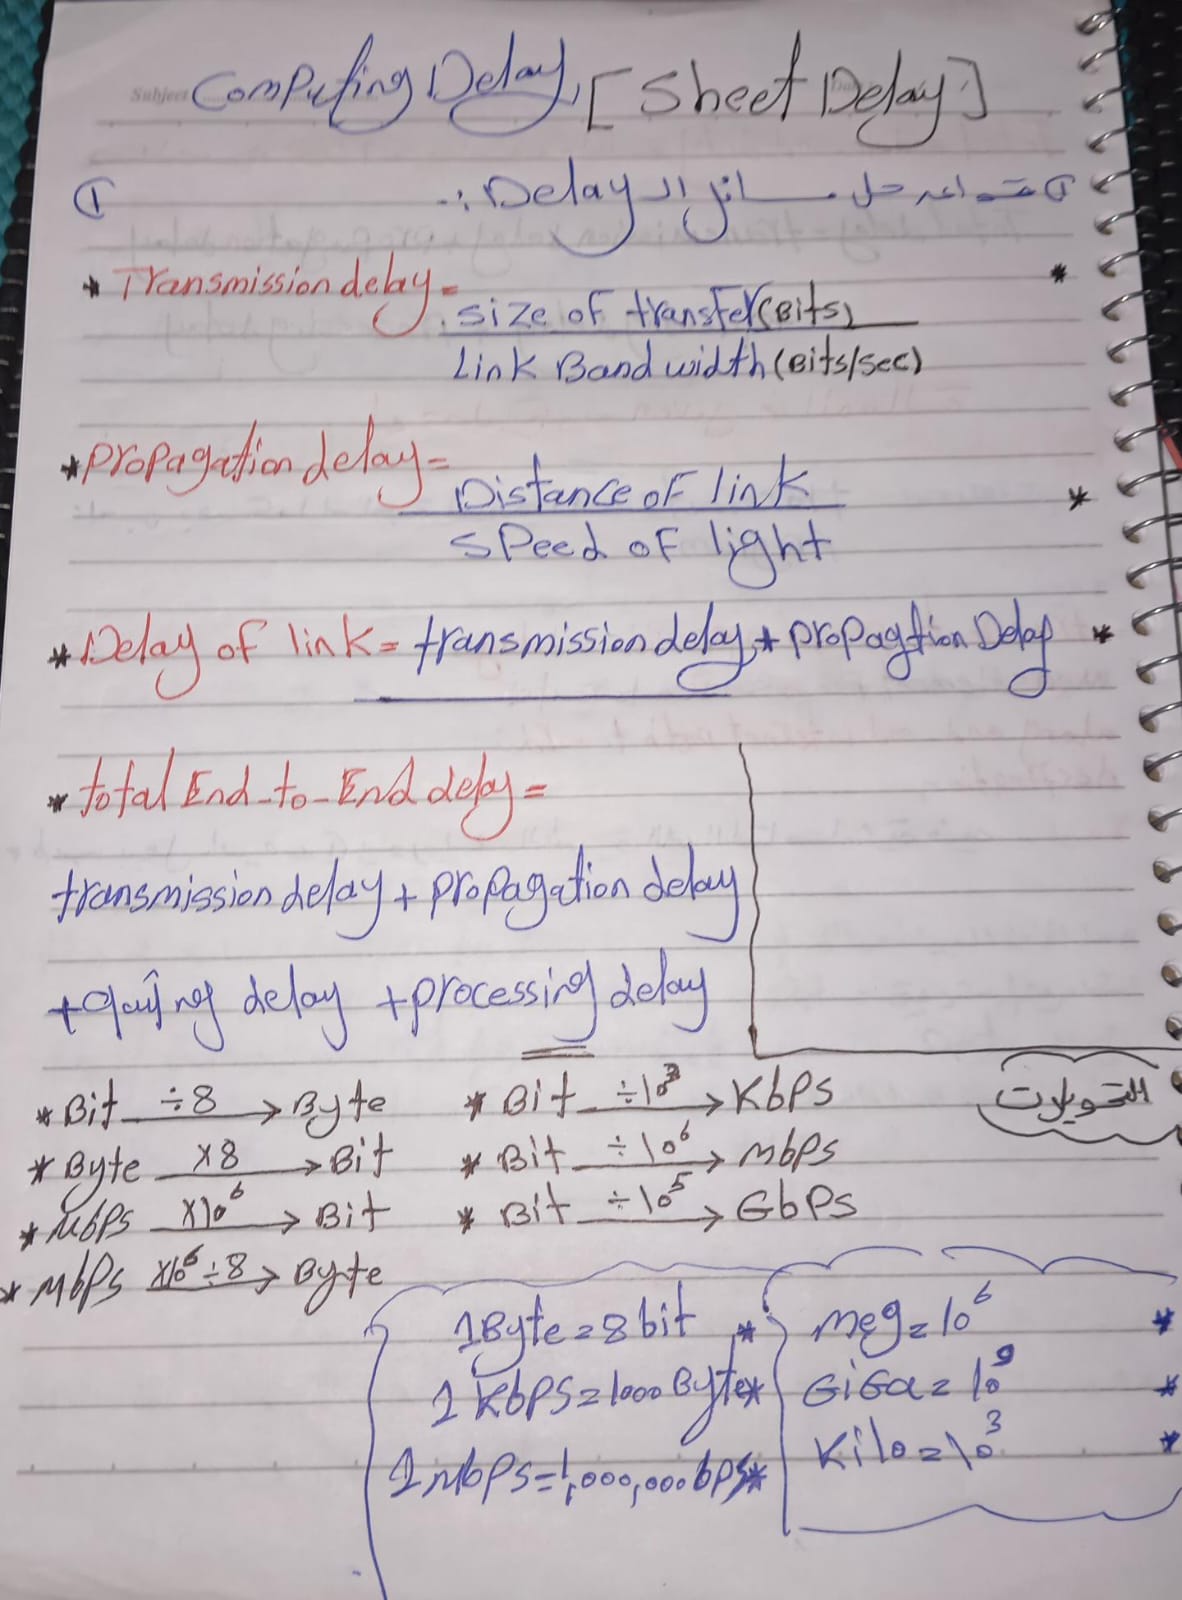 Subject
Computing Delay, [Sheet Delay]
① قواعد حل مسائل الـ Delay :. ①
* Transmission delay =
size of transfer (Bits)
Link Bandwidth (Bits/sec)
*
* propagation delay =
Distance of link
speed of light
*
* Delay of link = transmission delay + propagtion Delay *
* total End-to-End delay =
transmission delay + propagation delay
+ delay + processing delay
التحويلات
* Bit ÷8 → Byte
* Byte ×8 → Bit
* Mbps ×10⁶ → Bit
* Mbps ×10⁶ ÷8 → Byte
* Bit ÷10³ → Kbps
* Bit ÷10⁶ → mbps
* Bit ÷10⁵ → Gbps
1 Byte = 8 bit *
1 Kbps = 1000 Byte *
1 Mbps = 1,000,000 bps *
meg = 10⁶ *
GiGa = 10⁹ *
Kilo = 10³ *